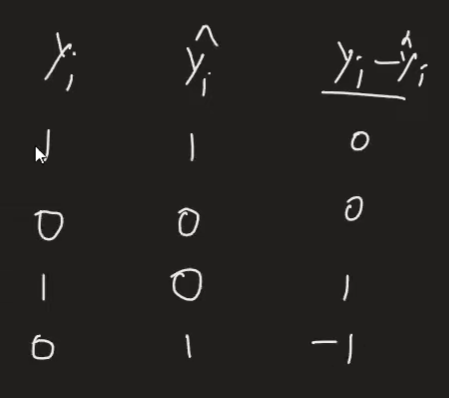 yᵢ ŷᵢ yᵢ - ŷᵢ
1 1 0
0 0 0
1 0 1
0 1 -1